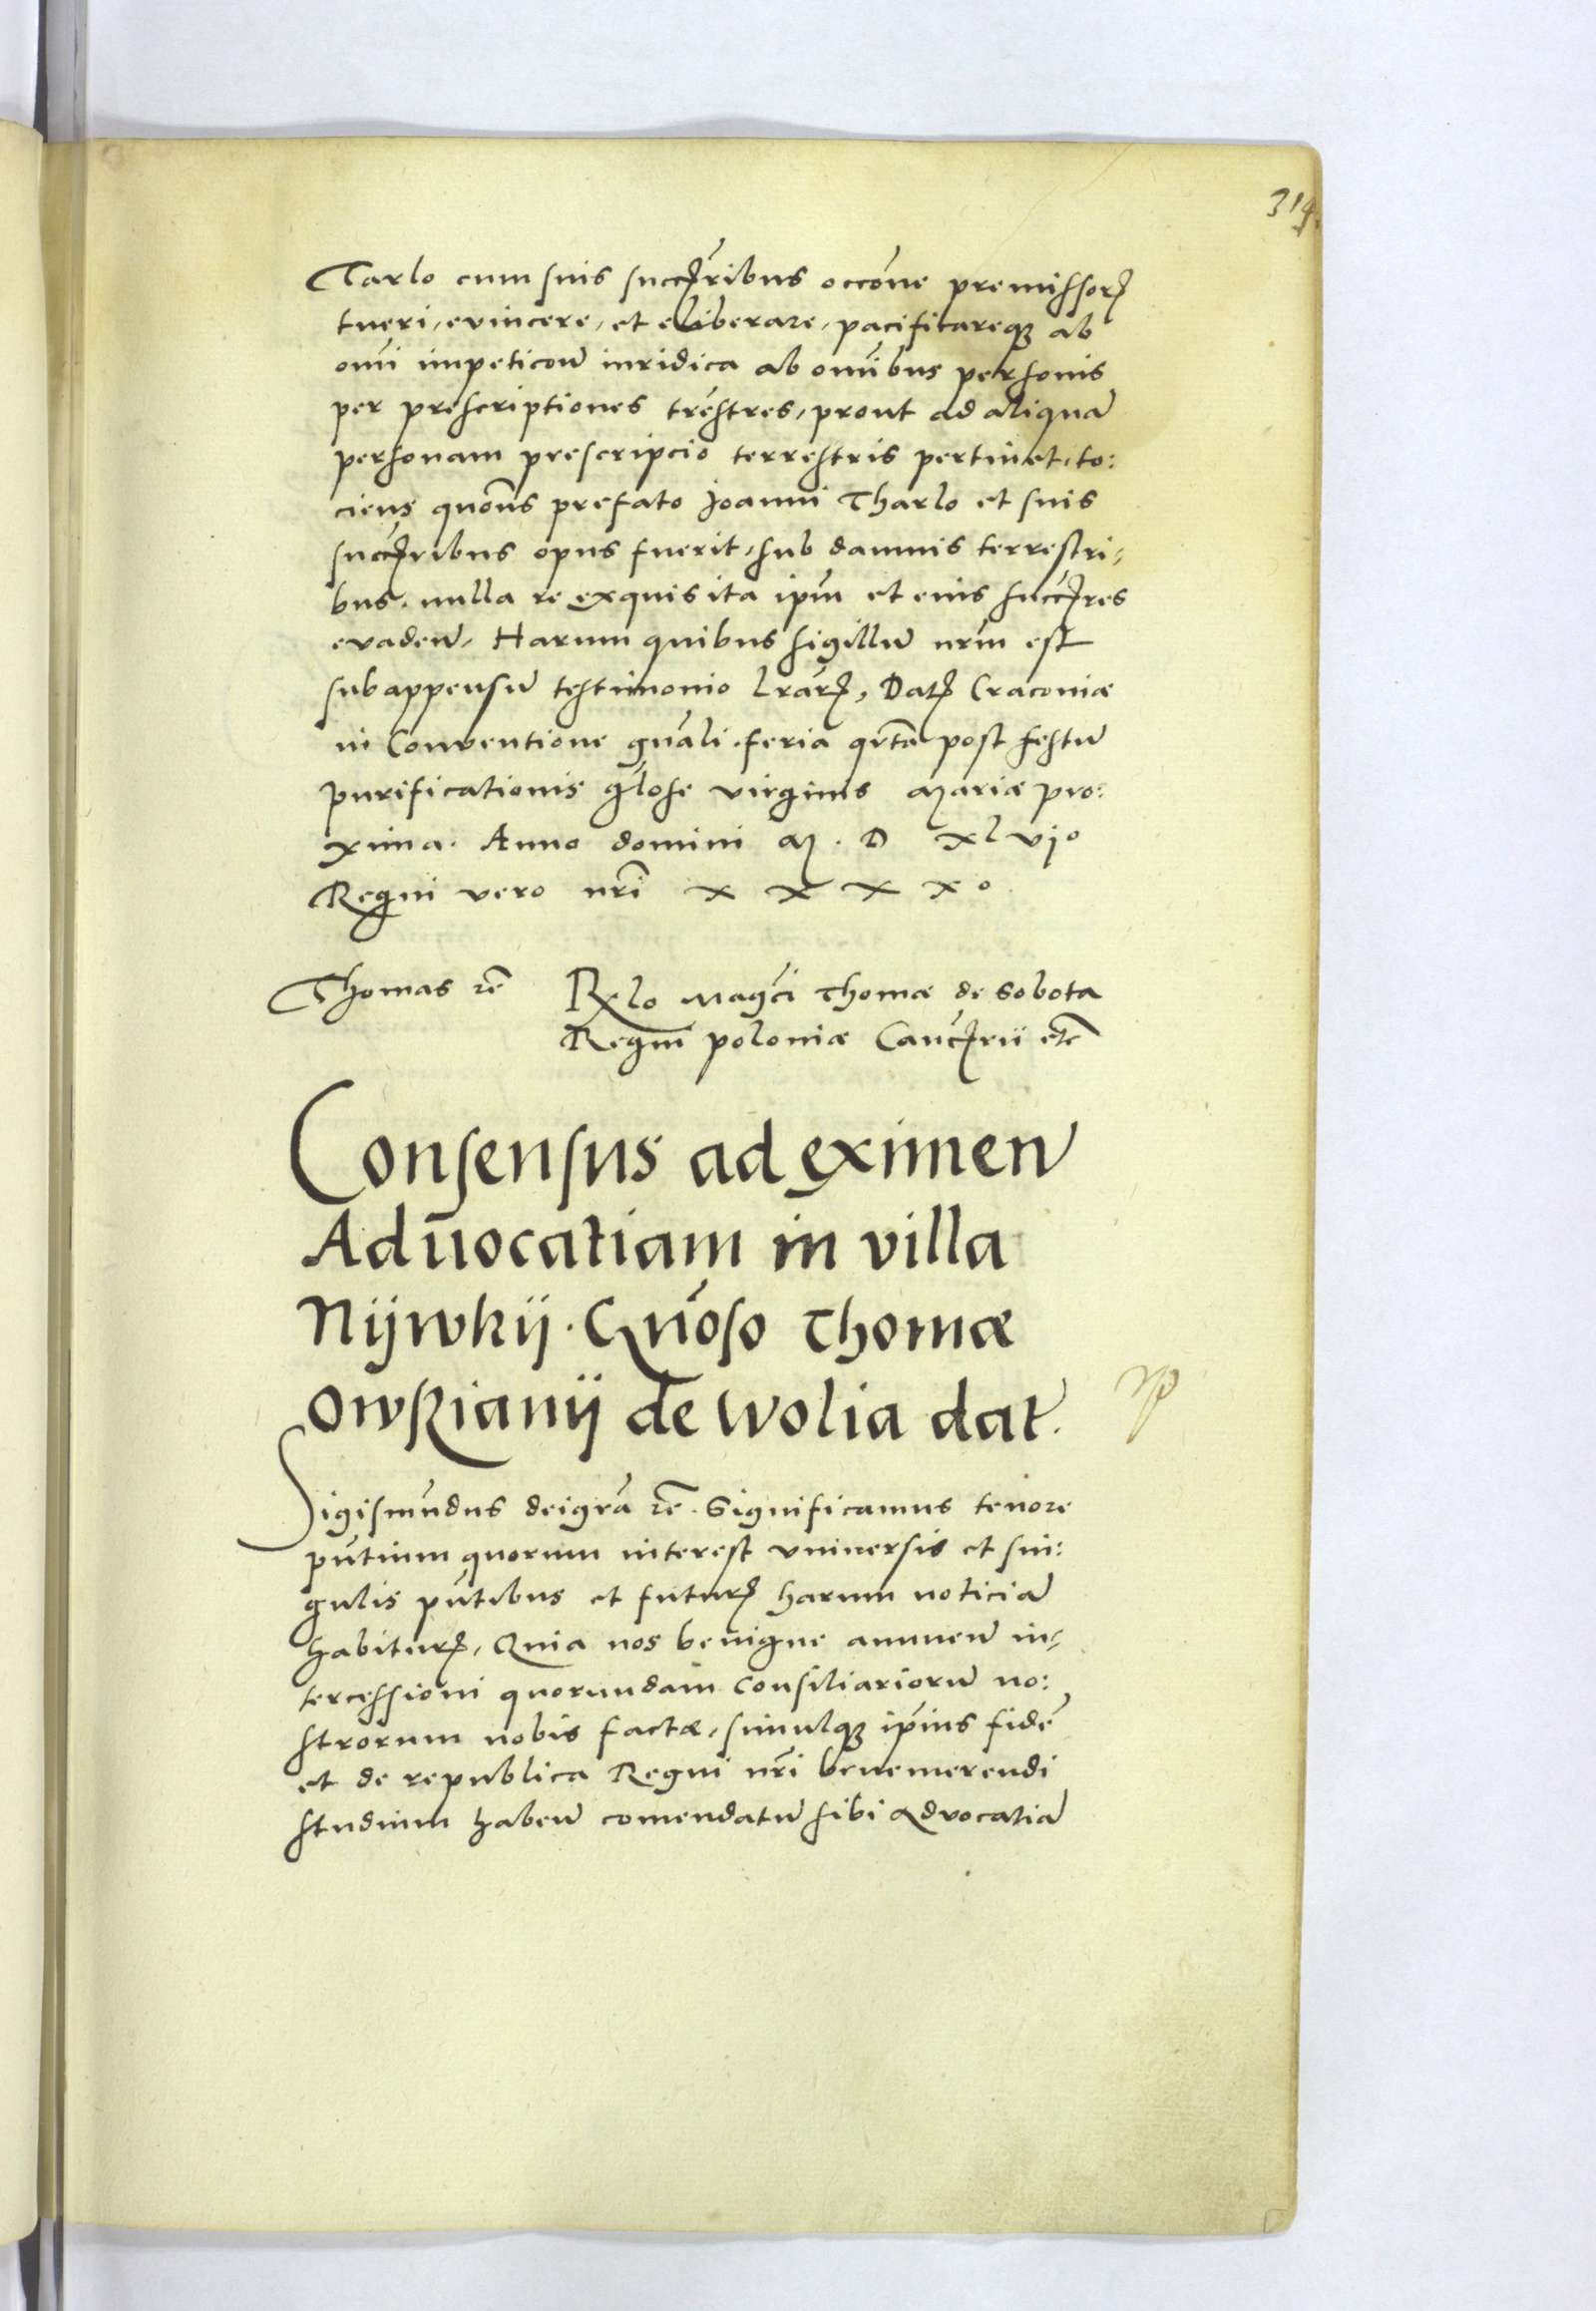 314.
Tarlo cum suis succꝭribus occōne premissorꝭ
tueri, evincere, et eliberare, pacificareqꝫ ab
omī impeticoīe iuridica ab omībus personis
per prescriptiones trēstres, prout ad aliquā
personam prescripcio terrestris pertinet, to:
ciens quoīns prefato Joanni Tharlo et suis
succꝭribus opus fuerit, sub damnis terrestri-
bus. nulla re exquisita ipm̄ et eius succꝭres
evadeñ, Harum quibus sigillū nrm̄ est
subappensū testimonio lrārꝭ, Datꝭ Cracoviæ
in Conventione gnāli. feria qrta post festū
purificationis glose virginis Mariæ pro:
xima. Anno domini M. D xlvjo
Regni vero nrī x x x xo
Thomas rē Rxlo Magci Thomæ de Sobota
Regni poloniæ Cancꝭrii etc
Consensus ad eximeñ
Aduocatiam in villa
Nijwkij. Gnōso Thomæ
Owskianij de Wolia dat.
Sigismūdus dei grā rē. Significamus tenore
pn̄tium quorum interest vniuersis et sin:
gulis pn̄tibus et futurꝭ harum noticiā
habiturꝭ, Quia nos benigne annueñ in-
tercessioni quorundam Consiliariorū no:
strorum nobis factæ, simulqꝫ ipīus fidē
et de republica Regni nrī benemerendi
studium habeñ comendatū sibi Advocatiā